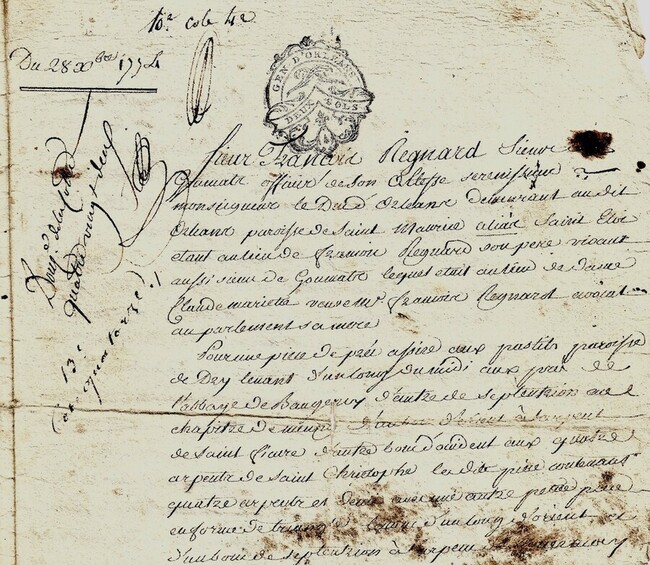 10.e cote 42
Du 28 xbre 1774
GEN. D'ORLEANS
DEUX SOLS
Sieur François Regnard Sieur
Goumatz officier de Son Altesse serenissime
monseigneur le Duc d'Orleans demeurant audit
Orleans paroisse de Saint Maurice alias Saint Eloi
etant au lieu de François Regnard son pere vivant
aussi sieur de Goumatz lequel etait au lieu de dame
Claude mariette veuve Mr. François Regnard avocat
au parlement sa mere
Pour une piece de pré assise aux pastils paroisse
de Dry tenant d'un long du midi aux prés de
l'abbaye de Baugency d'autre de septentrion au
chapitre de d'autre d'orient à arpent
de Saint d'autre bout d'occident aux quatre
arpents de Saint Christophe les dits piece contenant
quatre arpents et demi avec une autre petite piece
en forme de d'un long d'orient et
d'un bout de septentrion à arpent
quatre vingt deux
13.e
et quatorze